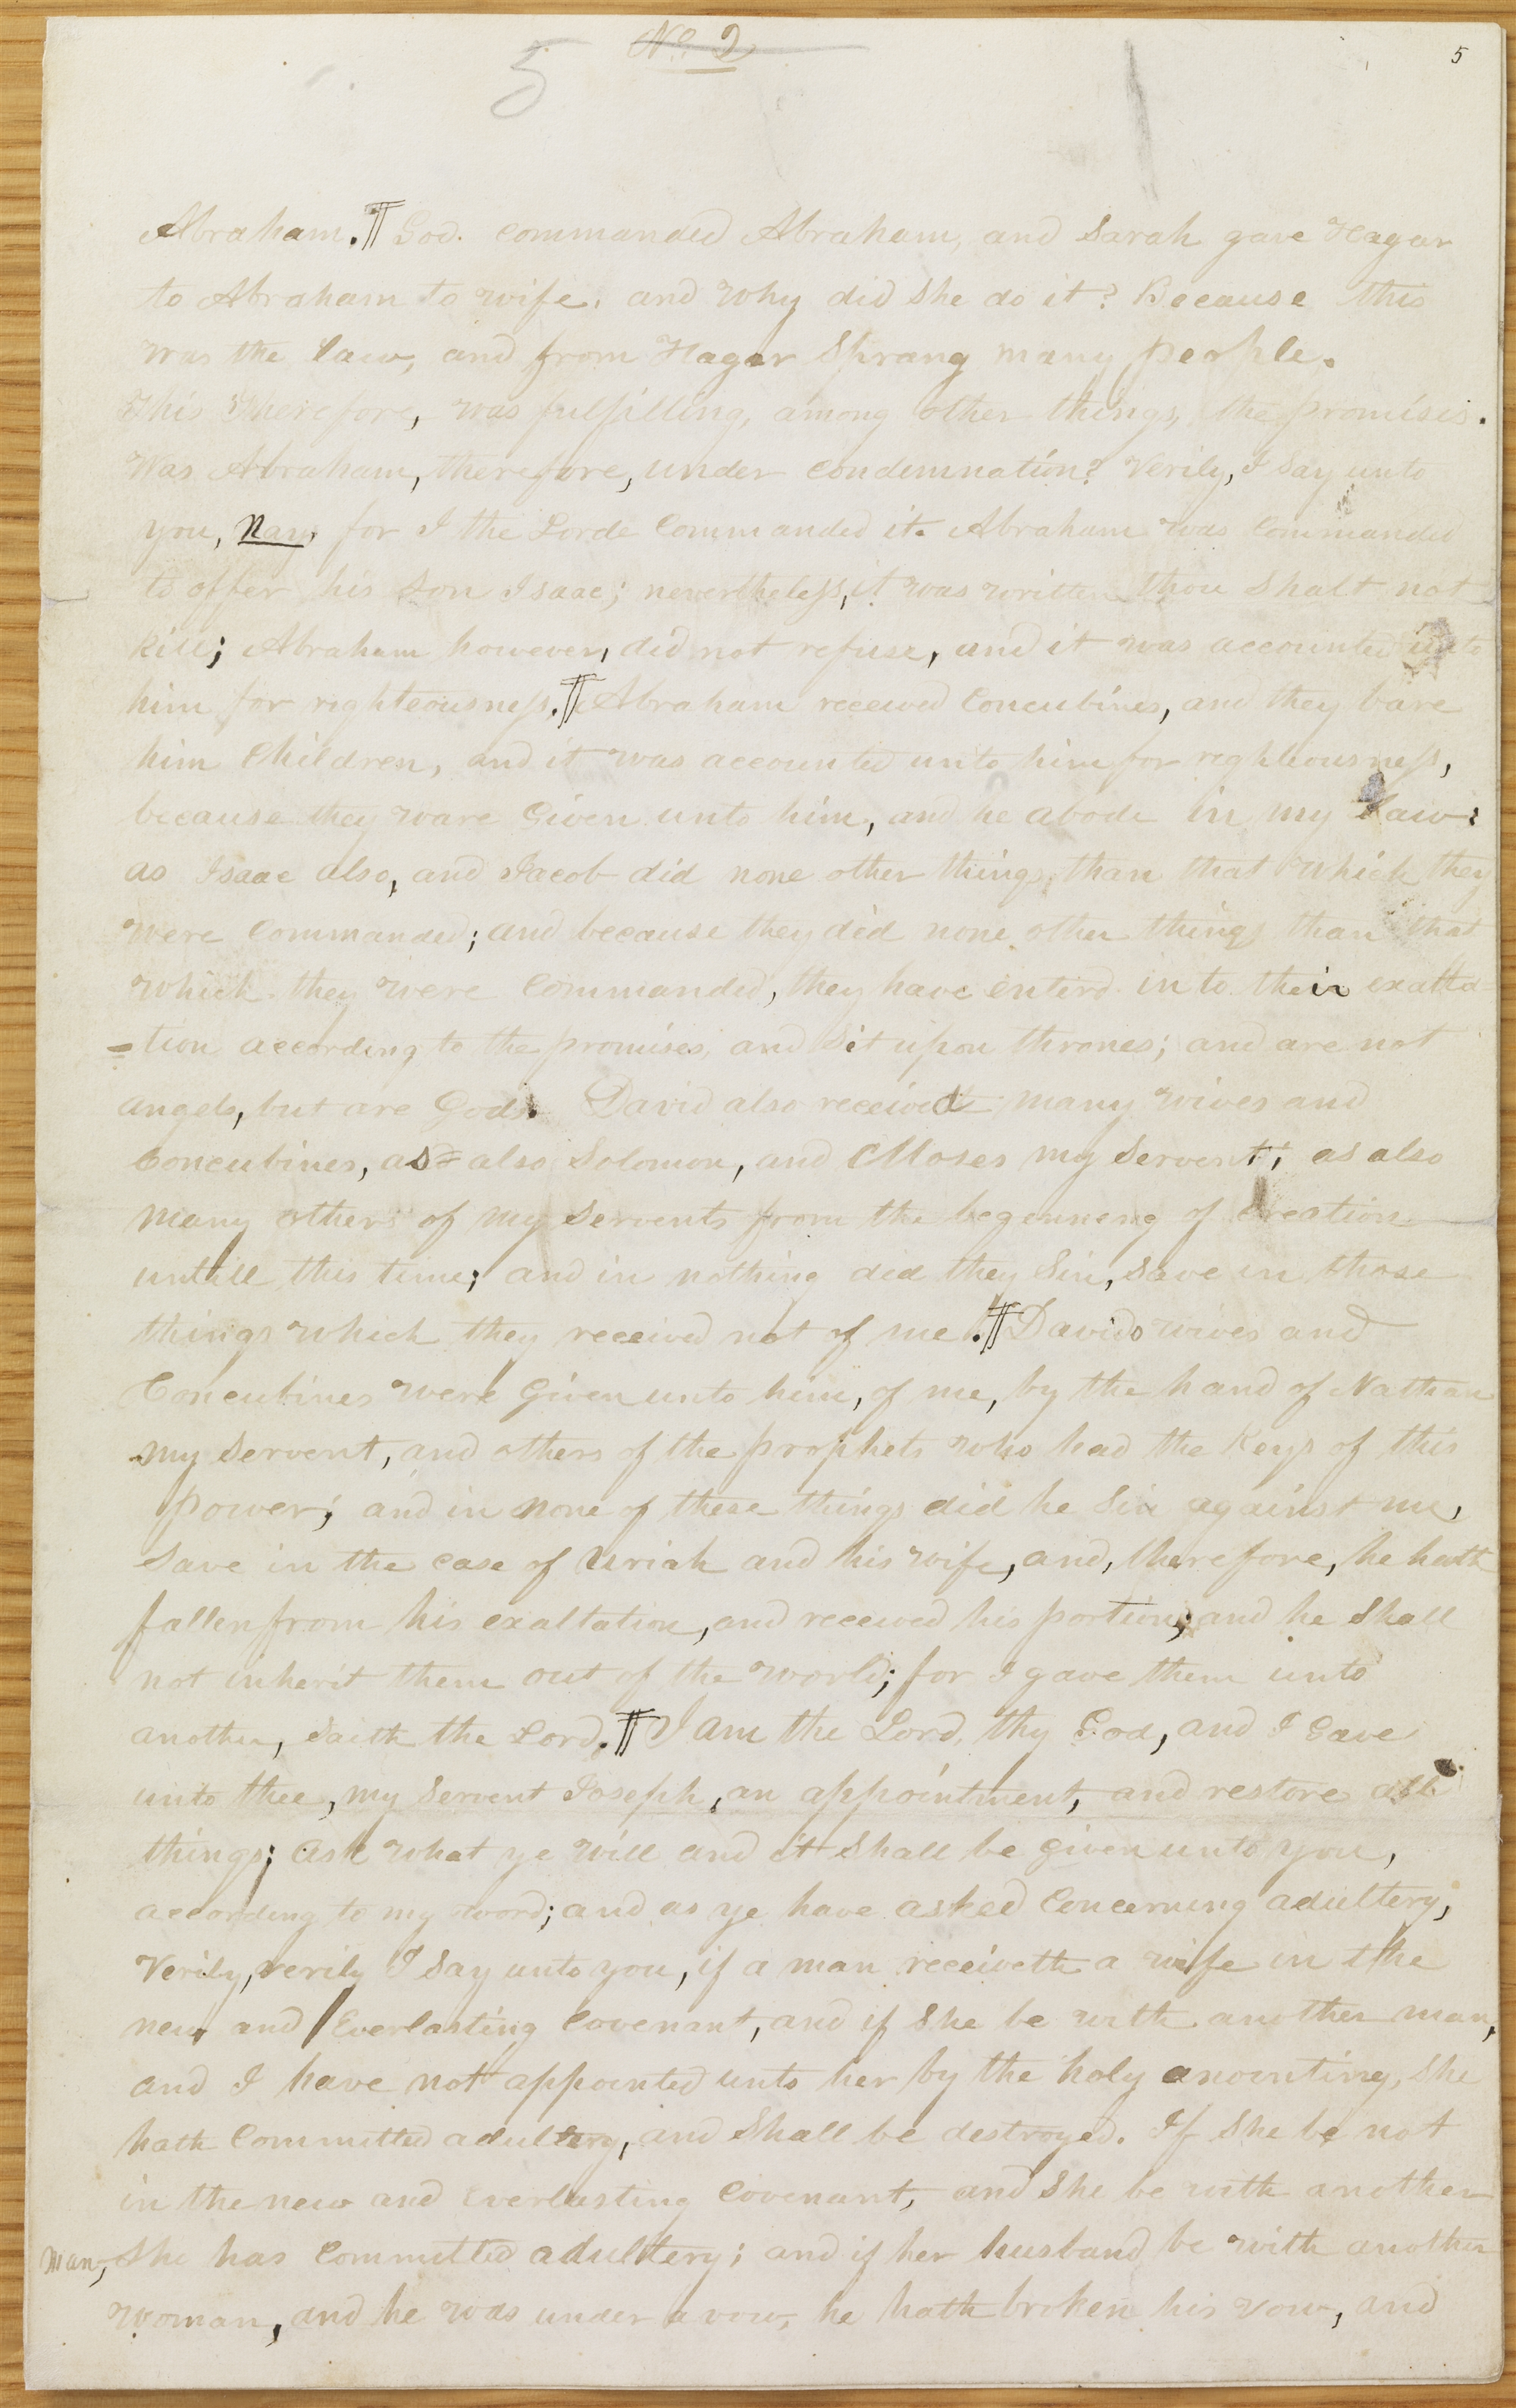 No 2
5
5
Abraham. ¶ God. commanded Abraham, and Sarah gave Hagar
to Abraham to wife. and why did she do it? Because this
was the law, and from Hagar Sprang many people.
This Therefore, was fulfilling, among other things, the promises.
Was Abraham, therefore, under condemnation? Verily, I say unto
you, Nay, for I the Lord Commanded it. Abraham was Commanded
to offer his son Isaac; nevertheless, it was written thou shalt not
kill; Abraham however, did not refuse, and it was accounted unto
him for righteousness. ¶ Abraham received Concubines, and they bare
him Children, and it was accounted unto him for righteousness,
because they ware Given unto him, and he abode in my Law:
as Isaac also, and Jacob did none other things, than that which they
were Commanded; and because they did none other things than that
which they were Commanded, they have enterd in to their exalta=
=tion according to the promises, and sit upon thrones; and are not
angels, but are Gods. David also received many wives and
Concubines, as also Solomon, and Moses my Servent; as also
many others of my Servents from the begenneng of Creation
untill this time; and in nothing did they Sin, save in those
things which they received not of me. ¶ Davids wives and
Concubines were Given unto him, of me, by the hand of Nathan
my Servent, and others of the prophets who had the Keys of this
power; and in none of these things did he Sin against me,
Save in the case of Uriah and his wife, and, therefore, he hath
fallen from his exaltation, and received his portion; and he Shall
not inherit them out of the world; for I gave them unto
another, saith the Lord. ¶ I am the Lord, thy God, and I Gave
unto thee, my Servent Joseph, an appointment, and restore all
things; ask what ye will and it Shall be given unto you,
according to my word; and as ye have asked Concerning adultery,
Verily, verily I say unto you, if a man receiveth a wife in the
new and Everlasting Covenant, and if She be with another man,
and I have not appointed unto her by the holy anointing, She
hath Committed adultery, and Shall be destroyed. If She be not
in the new and everlasting Covenant, and She be with another
man, She has Committed adultery; and if her husband be with another
woman, and he was under a vow, he hath broken his vow, and